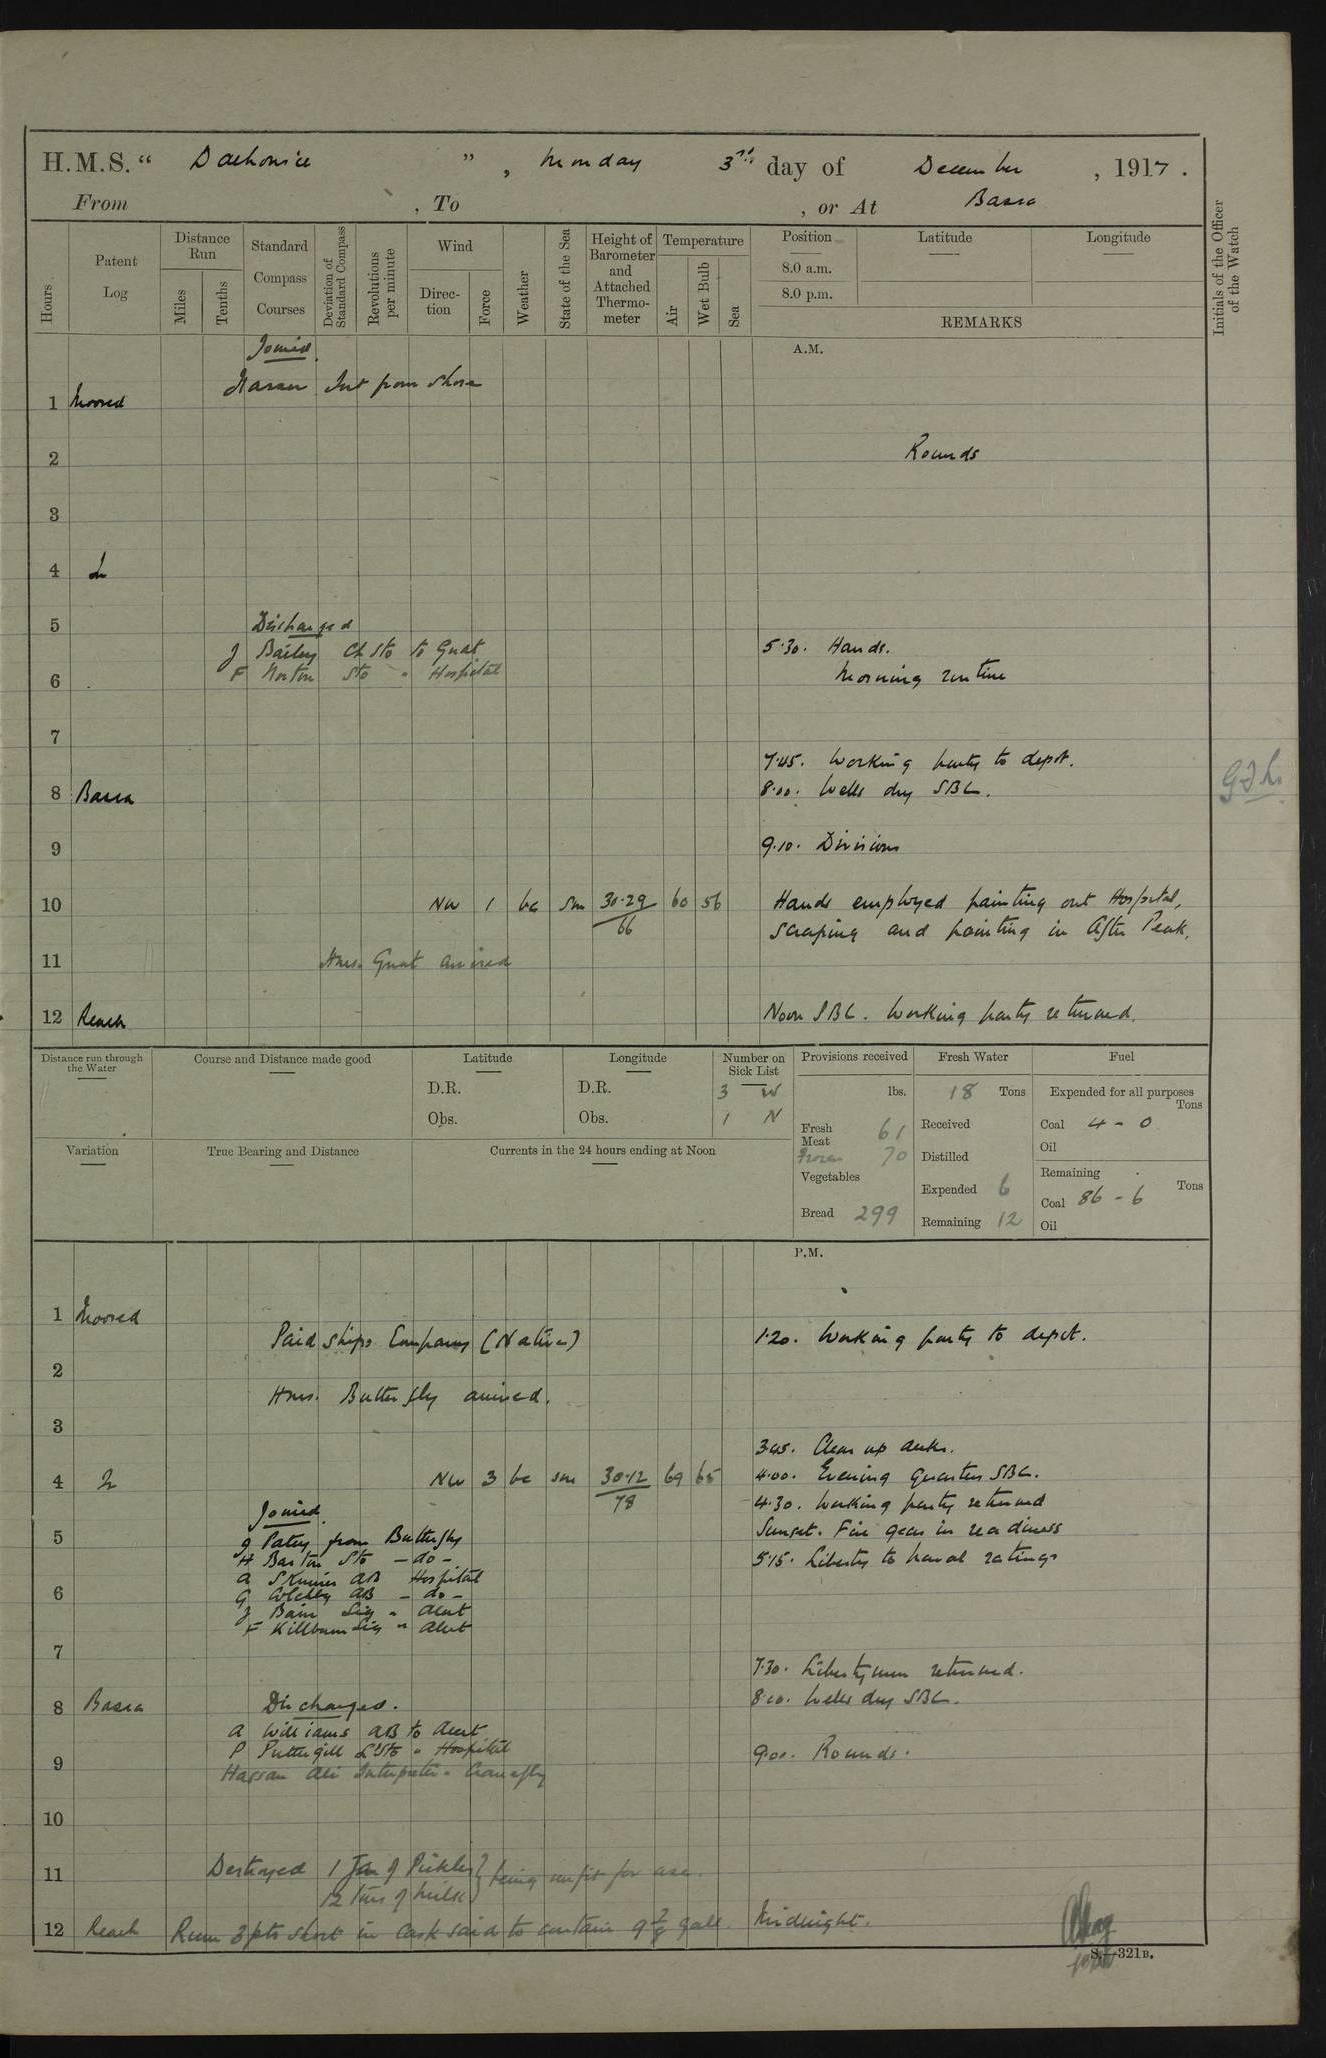 H.M.S. " Dalhousie ", Monday 3rd day of December, 1917.
From , To , or At Basra
Initials of the Officer of the Watch
Hours
Patent Log
Distance Run
Miles
Tenths
Standard Compass Courses
Deviation of Standard Compass
Revolutions per minute
Wind
Direction
Force
Weather
State of the Sea
Height of Barometer and Attached Thermometer
Temperature
Air
Wet Bulb
Sea
Position
8.0 a.m.
8.0 p.m.
Latitude
Longitude
REMARKS
A.M.
Joined
Int from Shore
1 Moored
2 Rounds
3
4
5 Discharged
J Bailey Ch Sto to Gnat
5.30. Hands.
F Norton Sto " Hospital
6 Morning routine
7
7.45. Working party to depot.
8 Basra 8.00. Wells dry SBC.
9 9.10. Divisions
10 NW 1 bc sm 30.29 60 56 Hands employed painting out Hospital,
66
scraping and painting in After Peak.
11 Hms. Gnat arrived
12 Reach Noon SBC. Working party returned.
Distance run through the Water
Course and Distance made good
Latitude
D.R.
Obs.
Longitude
D.R.
Obs.
Number on Sick List
3 W
1 N
Provisions received
lbs.
Fresh Meat 61
Frozen 70
Vegetables
Bread 299
Fresh Water
18 Tons
Received
Distilled
Expended 6
Remaining 12
Fuel
Expended for all purposes
Tons
Coal 4 - 0
Oil
Remaining
Tons
Coal 86 - 6
Oil
Variation
True Bearing and Distance
Currents in the 24 hours ending at Noon
P.M.
1 Moored
Paid ships Company (Natives) 1.20. Working party to depot.
2
Hms. Butterfly arrived.
3
3.45. Clear up decks.
4 NW 3 bc sm 30.12 69 65 4.00. Evening Quarters SBC.
78
Joined.
4.30. Working party returned
5 Sunset. Fire gear in readiness
J Patey from Butterfly
H Barton Sto - do -
5.15. Liberty to naval ratings
A Skinner AB Hospital
6 G AB - do -
J Bain Sig " Alert
F Killburn Sig " Alert
7
7.30. Libertymen returned.
8 Basra Discharged. 8.00. Wells dry SBC.
A Williams AB to Alert
P Puttergill L Sto " Hospital
9 9.00. Rounds.
Hassan Ali Interpreter "
10
11 Destroyed 1 Jar of Pickles } being unfit for use.
12 tins of Milk }
12 Reach Rum 3 pts short in cask said to contain 9 7/8 galls. Midnight.
S.—321B.